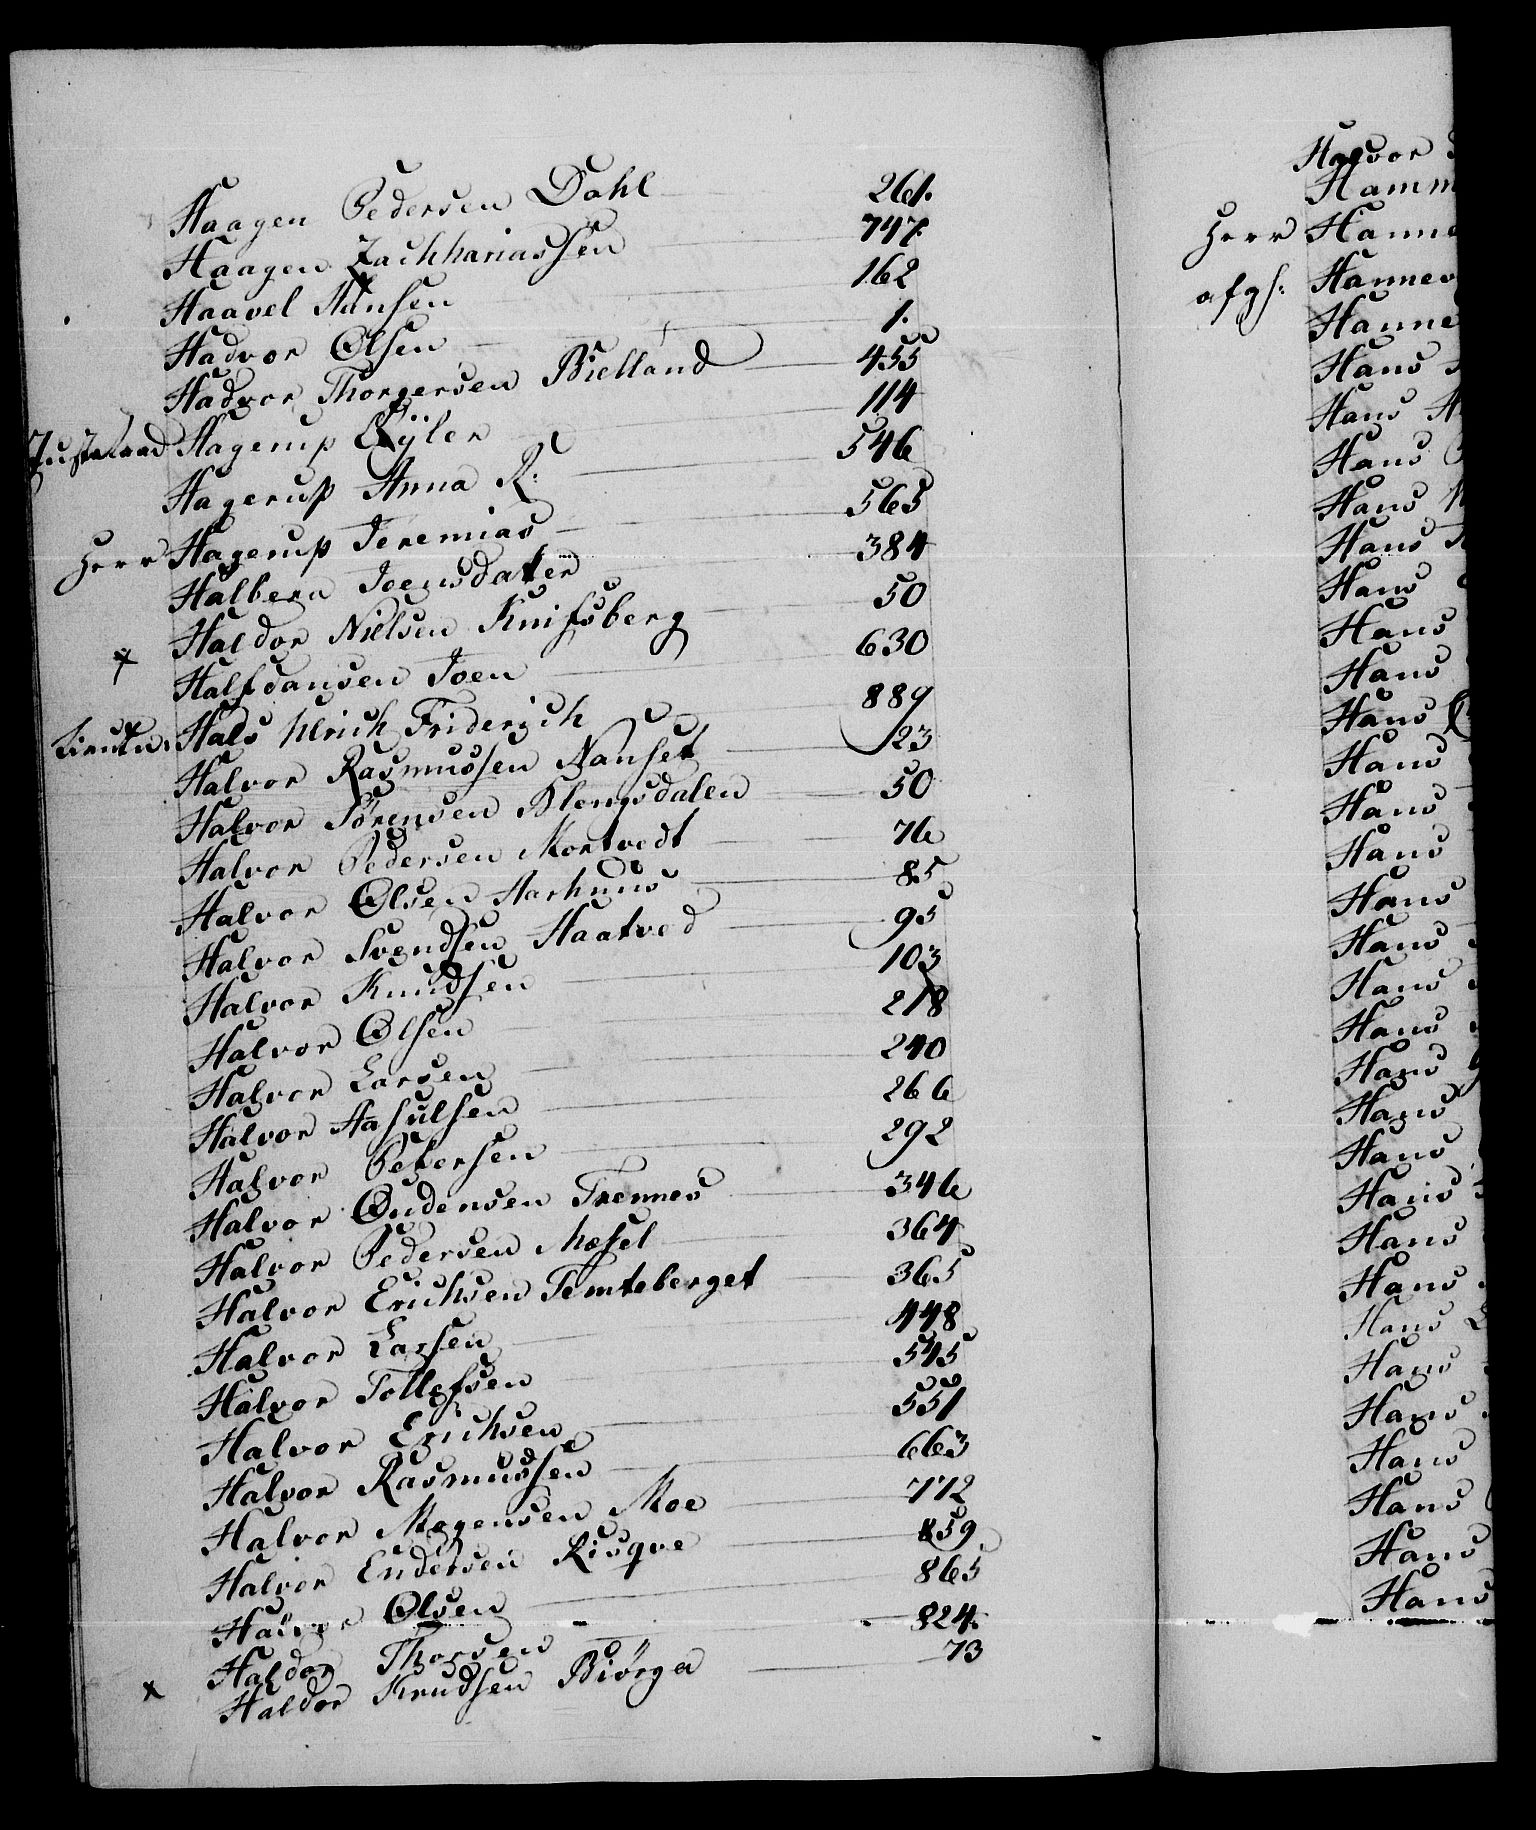 Haagen Pedersen Dahl 261.
Haagen Zachhariassen 747
Haavel Hansen 162
Hadvor Olsen 1.
Hadvor Thorgersen Bielland 455
Justsraad Hagerup Eÿler 114
Hagerup Anna R: 546
Herr Hagerup Jeremias 565
Halbera Joensdater 384
+ Haldor Nielsen Knifsberg 50
Halfdansen Joen 630
Lieutn: Hals Ulrich Friderich 889
Halvor Rasmussen Nanset 23
Halvor Sørensen Klengsdalen 50
Halvor Pedersen Mortvedt 76
Halvor Olsen Aarhuus 85
Halvor Svendsen Haatved 95
Halvor Knudsen 103
Halvor Olsen 218
Halvor Larsen 240
Halvor Aasulsen 266
Halvor Petersen 292
Halvor Oudensen Trennes 346
Halvor Pedersen Mæsel 364
Halvor Erichsen Temteberget 365
Halvor Larsen 448
Halvor Tollefsen 545
Halvor Erichsen 551
Halvor Rasmussen 663
Halvor Mogensen Moe 772
Halvor Endersen Risqve 859
Halvor Olsen 865
Haldor Thorsen 824.
x Haldor Knudsen Biørga 73
Halvor
Hamm
Herr Hanne
afgs: Hannev
Hanne
Hans
Hans
Hans
Hans
Hans
Hans
Hans
Hans
Hans
Hans
Hans
Hans
Hans
Hans
Hans
Hans
Hans
Hans
Hans
Hans
Hans
Hans
Hans
Hans
Hans
Hans
Hans
Hans
Hans